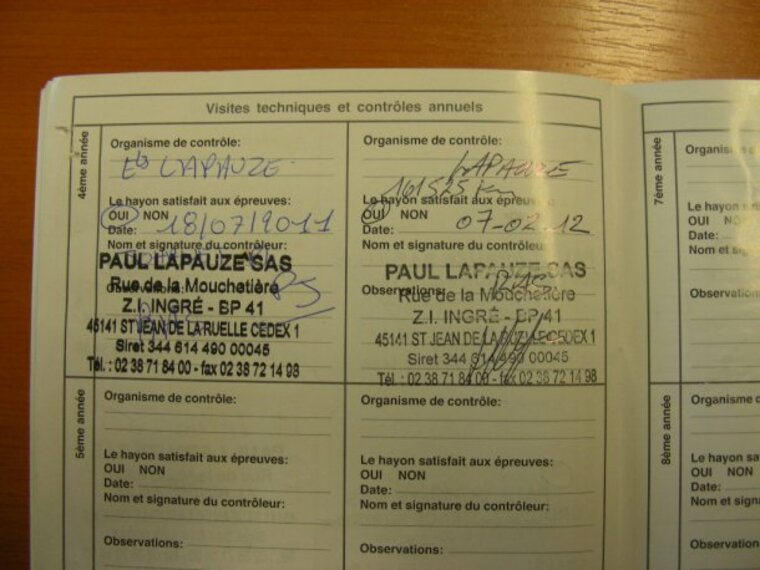 Visites techniques et contrôles annuels
4ème année
Organisme de contrôle:
Ets LAPAUZE
Le hayon satisfait aux épreuves:
OUI NON
Date: 18/07/2011
Nom et signature du contrôleur:
PAUL LAPAUZE SAS
Rue de la Mouchetière
Z.I. INGRÉ - BP 41
45141 ST JEAN DE LA RUELLE CEDEX 1
Siret 344 614 490 00045
Tél. : 02 38 71 84 00 - fax 02 38 72 14 98
Organisme de contrôle:
LAPAUZE
161525 Km
Le hayon satisfait aux épreuves:
OUI NON
Date: 07-02-12
Nom et signature du contrôleur
PAUL LAPAUZE SAS
Observations: RAS
Rue de la Mouchetière
Z.I. INGRÉ - BP 41
45141 ST JEAN DE LA RUELLE CEDEX 1
Siret 344 614 490 00045
Tél. : 02 38 71 84 00 - fax 02 38 72 14 98
5ème année
Organisme de contrôle:
Le hayon satisfait aux épreuves:
OUI NON
Date:
Nom et signature du contrôleur:
Observations:
Organisme de contrôle:
Le hayon satisfait aux épreuves:
OUI NON
Date:
Nom et signature du contrôleur:
Observations:
7ème année
Organisme
Le hayon
OUI NON
Date:
Nom et
Observation
8ème année
Organisme
Le hayon
OUI NON
Date:
Nom et
Observation